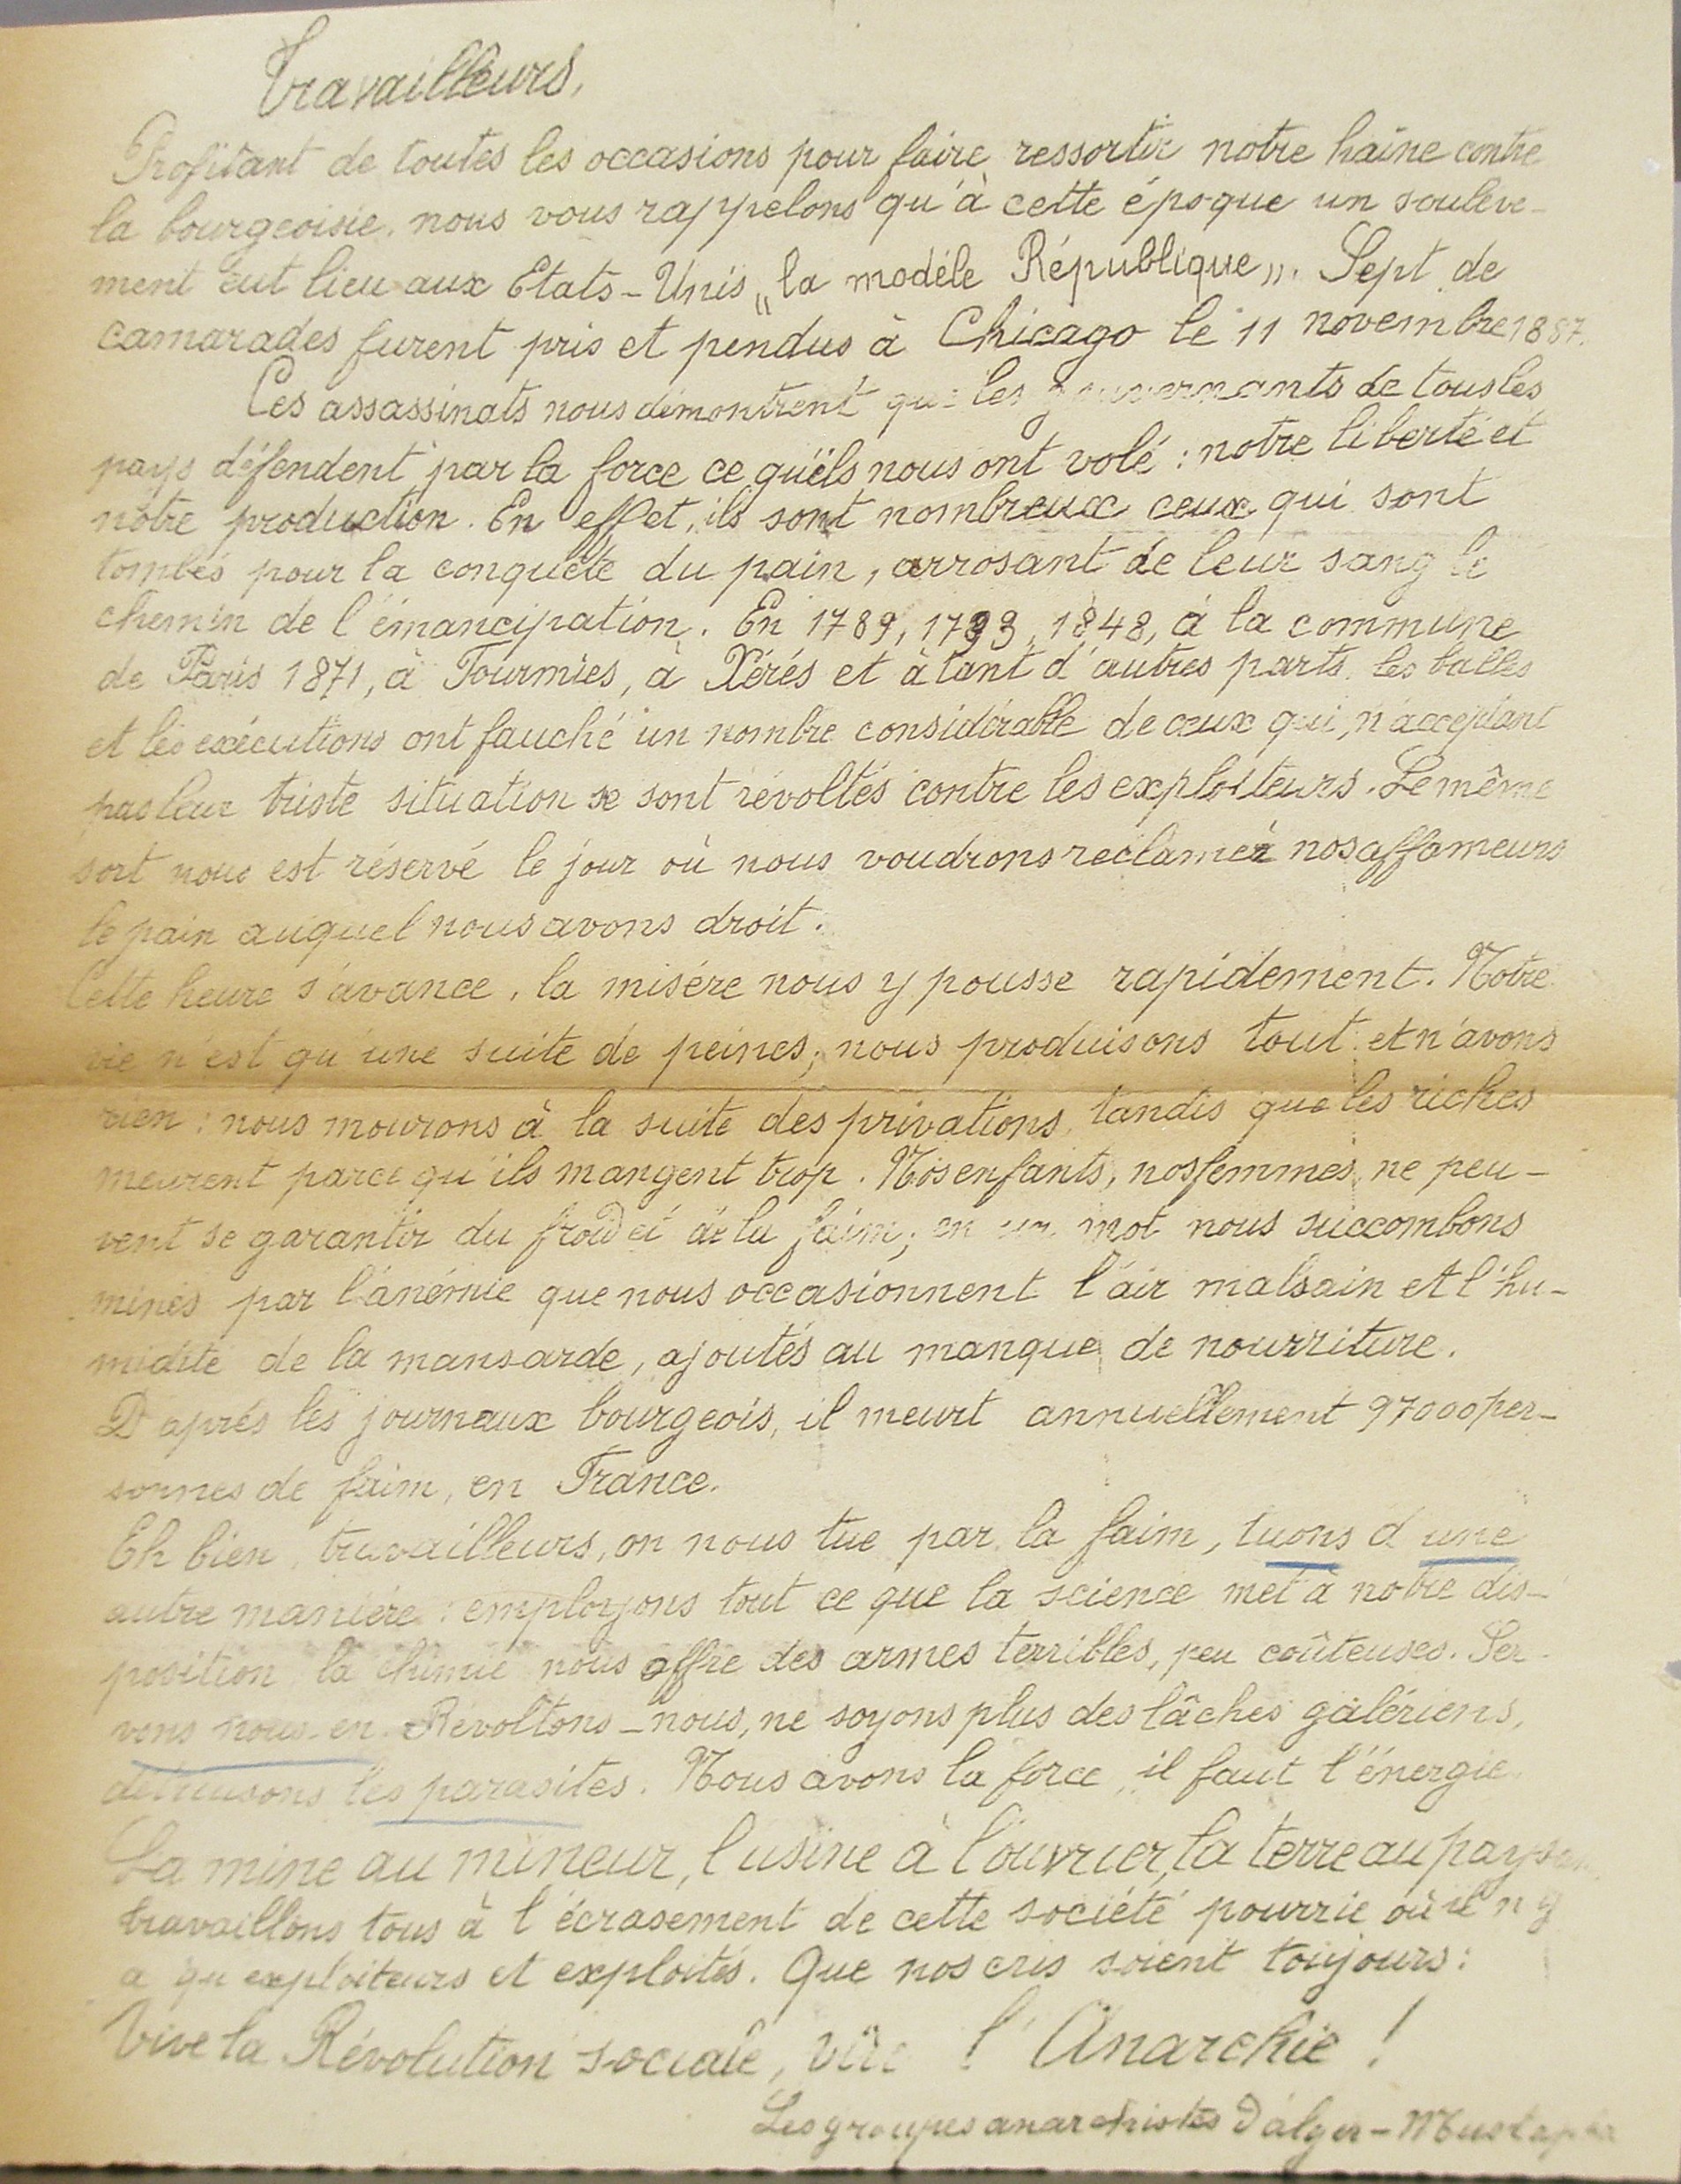 Travailleurs,
Profitant de toutes les occasions pour faire ressortir notre haine contre
la bourgeoisie, nous vous rappelons qu'à cette époque un soulève-
ment eut lieu aux Etats-Unis „la modéle République„. Sept de
camarades furent pris et pendus à Chicago le 11 novembre 1887.
Ces assassinats nous démontrent que les gouvernants de tous les
pays défendent par la force ce qu'ils nous ont volé : notre liberté et
notre production. En effet, ils sont nombreux ceux qui sont
tombés pour la conquête du pain, arrosant de leur sang le
chemin de l'émancipation. En 1789, 1793, 1848, à la commune
de Paris 1871, à Fourmies, à Xérés et à tant d'autres parts, les balles
et les exécutions ont fauché un nombre considérable de ceux qui, n'acceptant
pas leur triste situation se sont révoltés contre les exploiteurs. Le même
sort nous est réservé le jour où nous voudrons reclamer nos affameurs
le pain auquel nous avons droit.
Cette heure s'avance, la misére nous y pousse rapidement. Notre
vie n'est qu'une suite de peines; nous produisons tout et n'avons
rien : nous mourons à la suite des privations, tandis que les riches
meurent parce qu'ils mangent trop. Nos enfants, nos femmes, ne peu-
vent se garantir du froid et de la faim; en un mot nous succombons
minés par l'anémie que nous occasionnent l'air malsain et l'hu-
midité de la mansarde, ajoutés au manque de nourriture.
D'aprés les journaux bourgeois, il meurt annuellement 97000 per-
sonnes de faim, en France.
Eh bien, travailleurs, on nous tue par la faim, tuons d'une
autre maniére : employons tout ce que la science met à notre dis-
position la chimie nous offre des armes terribles, peu coûteuses. Ser-
vons nous-en. Révoltons-nous, ne soyons plus des lâches galériens,
détruisons les parasites. Nous avons la force, il faut l'énergie.
La mine au mineur, l'usine à l'ouvrier, la terre au paysan
travaillons tous à l'écrasement de cette société pourrie où il n'y
a qu'exploiteurs et exploités. Que nos cris soient toujours :
Vive la Révolution sociale, vive l'Anarchie !
Les groupes anarchistes d'alger-Mustapha